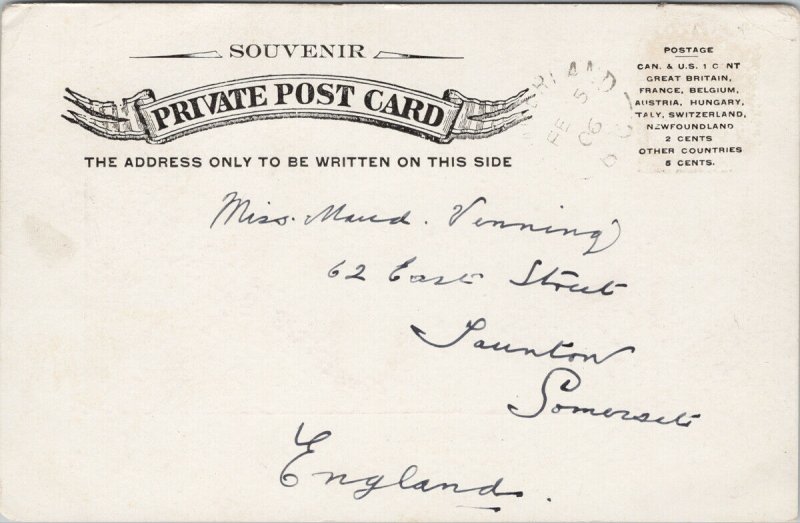 SOUVENIR
PRIVATE POST CARD
THE ADDRESS ONLY TO BE WRITTEN ON THIS SIDE
POSTAGE
CAN. & U.S. 1 C NT
GREAT BRITAIN,
FRANCE, BELGIUM,
AUSTRIA, HUNGARY,
TALY, SWITZERLAND,
NEWFOUNDLAND
2 CENTS
OTHER COUNTRIES
5 CENTS.
FE 5
06
Miss. Maud. Venning
62 East Street
Taunton
Somerset
England.